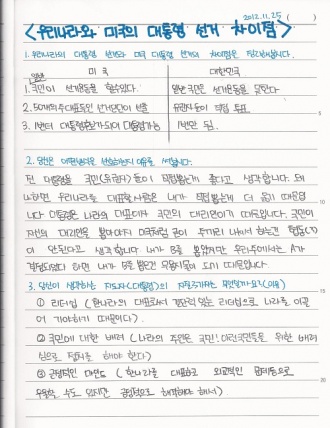 2012. 11. 25 ( )
<우리나라와 미국의 대통령 선거 차이점>
1. 우리나라의 대통령 선거와 미국 대통령 선거의 차이점은
미국 대한민국
1. 국민이 선거운동을 할수있다. 일반 국민은 선거운동을 못한다
2. 50개의 주 대표도인 선거인단이 선출 유권자들이 직접 투표
3. 1번더 대통령후보가되어 대통령가능 1번만 됨.
5
2. 당신은 어떤방식을 선호하는지 이유를
전 대통령을 국민(유권자) 들이 직접뽑는게 좋다고 생각합니다. 왜
냐하면 우리나라를 대표할사람은 내가 직접뽑는게 더 옳기 때문입
니다 대통령은 나라의 대표이자 국민의 대리인이기 때문입니다. 국민이
10
자신의 대리인을 뽑아야지 미국처럼 굳이 누가 나서서 하는건
이 안된다고 생각합니다 내가 B를 뽑았지만 우리주에서는 A가
결정되었다 하면 내가 B를 뽑은건 무용지물이 되기 때문입니다.
3. 당신이 생각하는 지도자(대통령)의 자질 무엇인가요? (이유)
15
① 리더십 (한나라의 대표로서 있는 리더십으로 나라를 이끌
어 가야하기 때문이다).
② 국민에 대한 배려 (나라의 주인은 국민! 국민들을 위한 배려
심으로 정치를 해야 한다)
③ 긍정적인 마인드 (한나라를 대표하고 외교적인 문제등으로
20
수도 있지만 긍정적으로 해결해야 해서).